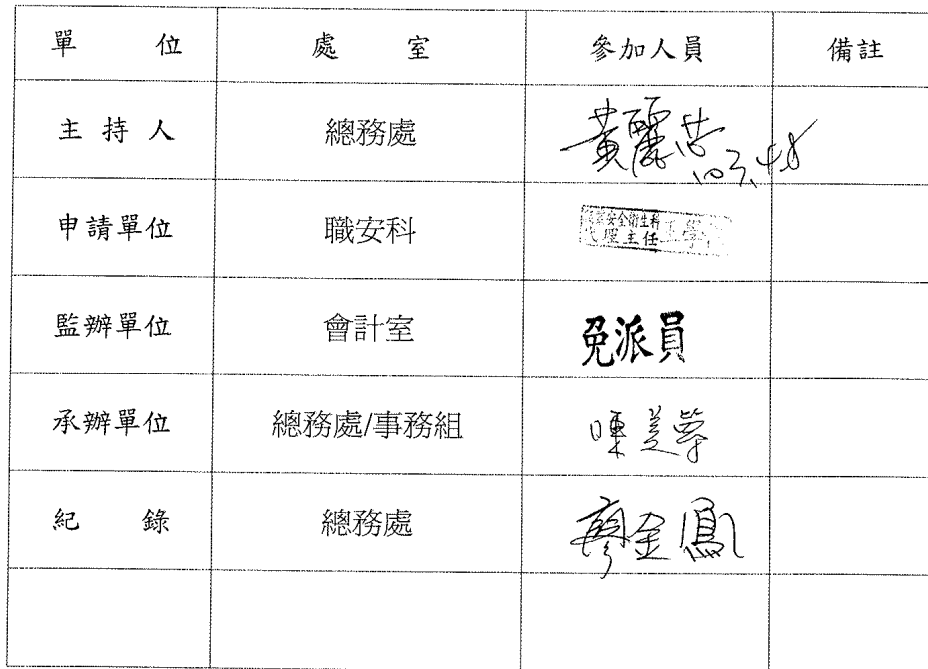 單 位 處 室 參加人員 備註
主 持 人 總務處 黃麗
103.4.8
申請單位 職安科 職業安全衛生科
代理主任 王學
監辦單位 會計室 免派員
承辦單位 總務處/事務組 陳美
紀 錄 總務處 廖金鳳